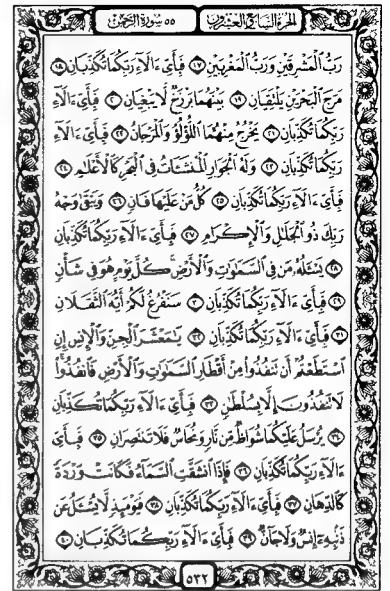 الجزء السابع والعشرون ٥٥ سورة الرحمن
رَبُّ ٱلْمَشْرِقَيْنِ وَرَبُّ ٱلْمَغْرِبَيْنِ ١٧ فَبِأَيِّ ءَالَآءِ رَبِّكُمَا تُكَذِّبَانِ ١٨
مَرَجَ ٱلْبَحْرَيْنِ يَلْتَقِيَانِ ١٩ بَيْنَهُمَا بَرْزَخٌ لَّا يَبْغِيَانِ ٢٠ فَبِأَيِّ ءَالَآءِ
رَبِّكُمَا تُكَذِّبَانِ ٢١ يَخْرُجُ مِنْهُمَا ٱللُّؤْلُؤُ وَٱلْمَرْجَانُ ٢٢ فَبِأَيِّ ءَالَآءِ
رَبِّكُمَا تُكَذِّبَانِ ٢٣ وَلَهُ ٱلْجَوَارِ ٱلْمُنشَـَٔاتُ فِي ٱلْبَحْرِ كَٱلْأَعْلَٰمِ ٢٤
فَبِأَيِّ ءَالَآءِ رَبِّكُمَا تُكَذِّبَانِ ٢٥ كُلُّ مَنْ عَلَيْهَا فَانٍ ٢٦ وَيَبْقَىٰ وَجْهُ
رَبِّكَ ذُو ٱلْجَلَٰلِ وَٱلْإِكْرَامِ ٢٧ فَبِأَيِّ ءَالَآءِ رَبِّكُمَا تُكَذِّبَانِ
٢٨ يَسْـَٔلُهُۥ مَن فِي ٱلسَّمَٰوَٰتِ وَٱلْأَرْضِ ۚ كُلَّ يَوْمٍ هُوَ فِي شَأْنٍ
٢٩ فَبِأَيِّ ءَالَآءِ رَبِّكُمَا تُكَذِّبَانِ ٣٠ سَنَفْرُغُ لَكُمْ أَيُّهَ ٱلثَّقَلَانِ
٣١ فَبِأَيِّ ءَالَآءِ رَبِّكُمَا تُكَذِّبَانِ ٣٢ يَٰمَعْشَرَ ٱلْجِنِّ وَٱلْإِنسِ إِنِ
ٱسْتَطَعْتُمْ أَن تَنفُذُوا۟ مِنْ أَقْطَارِ ٱلسَّمَٰوَٰتِ وَٱلْأَرْضِ فَٱنفُذُوا۟ ۚ
لَا تَنفُذُونَ إِلَّا بِسُلْطَٰنٍ ٣٣ فَبِأَيِّ ءَالَآءِ رَبِّكُمَا تُكَذِّبَانِ
٣٤ يُرْسَلُ عَلَيْكُمَا شُوَاظٌ مِّن نَّارٍ وَنُحَاسٌ فَلَا تَنتَصِرَانِ ٣٥ فَبِأَيِّ
ءَالَآءِ رَبِّكُمَا تُكَذِّبَانِ ٣٦ فَإِذَا ٱنشَقَّتِ ٱلسَّمَآءُ فَكَانَتْ وَرْدَةً
كَٱلدِّهَانِ ٣٧ فَبِأَيِّ ءَالَآءِ رَبِّكُمَا تُكَذِّبَانِ ٣٨ فَيَوْمَئِذٍ لَّا يُسْـَٔلُ عَن
ذَنۢبِهِۦٓ إِنسٌ وَلَا جَآنٌّ ٣٩ فَبِأَيِّ ءَالَآءِ رَبِّكُمَا تُكَذِّبَانِ ٤٠
٥٣٢